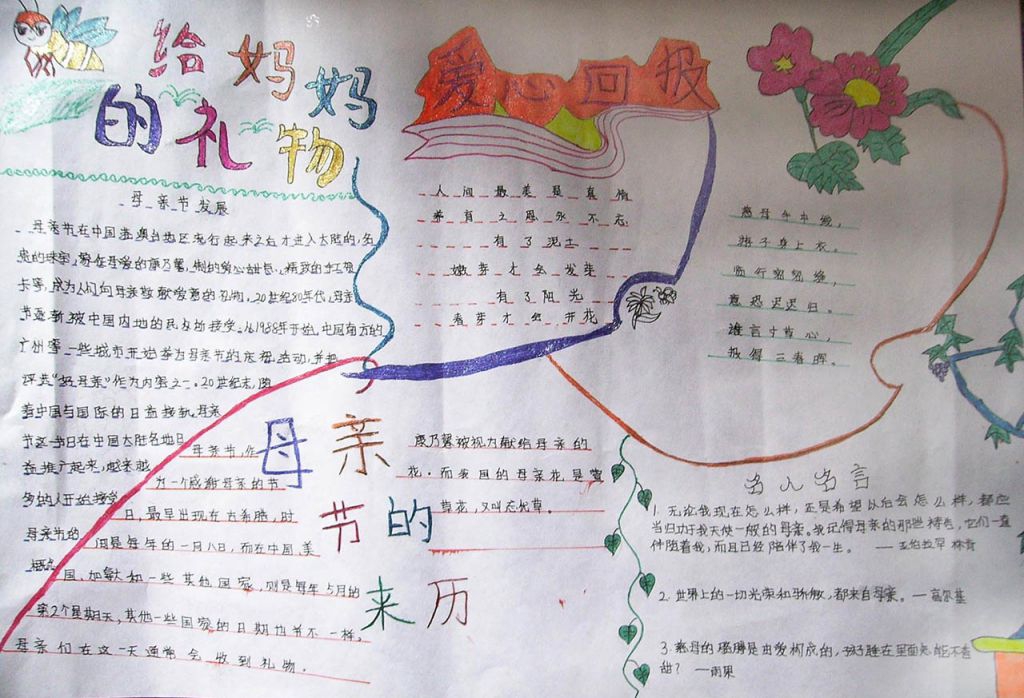 给妈妈
的礼物
母亲节发展
母亲节在中国港澳台地区流行起来之后才进入大陆的,名
贵的珠宝,象征母爱的康乃馨,
卡等,成为人们向母亲敬献爱意的礼物,20世纪80年代,母亲
节逐渐被中国内地的民众所接受。从1988年开始,中国南方的
广州等一些城市开始举办母亲节的庆祝活动,并把
评选“好母亲”作为内容之一。20世纪末,随
着中国与国际的日益接轨,母亲
节这一节日在中国大陆各地日
益推广起来,越来越
多的人开始接受
母亲节的
概念
爱心回报
人间最美是真情
养育之恩永不忘
有了泥土
嫩芽才会发芽
有了阳光
春芽才会开花
慈母手中线,
游子身上衣。
临行密密缝,
意恐迟迟归。
谁言寸草心,
报得三春晖。
母亲
节的
来历
母亲节,作
为一个感谢母亲的节
日,最早出现在古希腊,时
间是每年的一月八日,而在中国、美
国、加拿大和一些其他国家,则是每年5月的
第2个星期天,其他一些国家的日期也并不一样。
母亲们在这一天通常会收到礼物。
康乃馨被视为献给母亲的
花,而我国的母亲花是萱
草花,又叫忘忧草。
名人名言
1. 无论我现在怎么样,还是希望以后会怎么样,都应
当归功于我天使一般的母亲。我记得母亲的那些祷告,它们一直
伴随着我,而且已经陪伴了我一生。 —亚伯拉罕 林肯
2. 世界上的一切光荣和骄傲,都来自母亲。—高尔基
3. 慈母的胳膊是由爱构成的,孩子睡在里面怎能不香
甜? —雨果